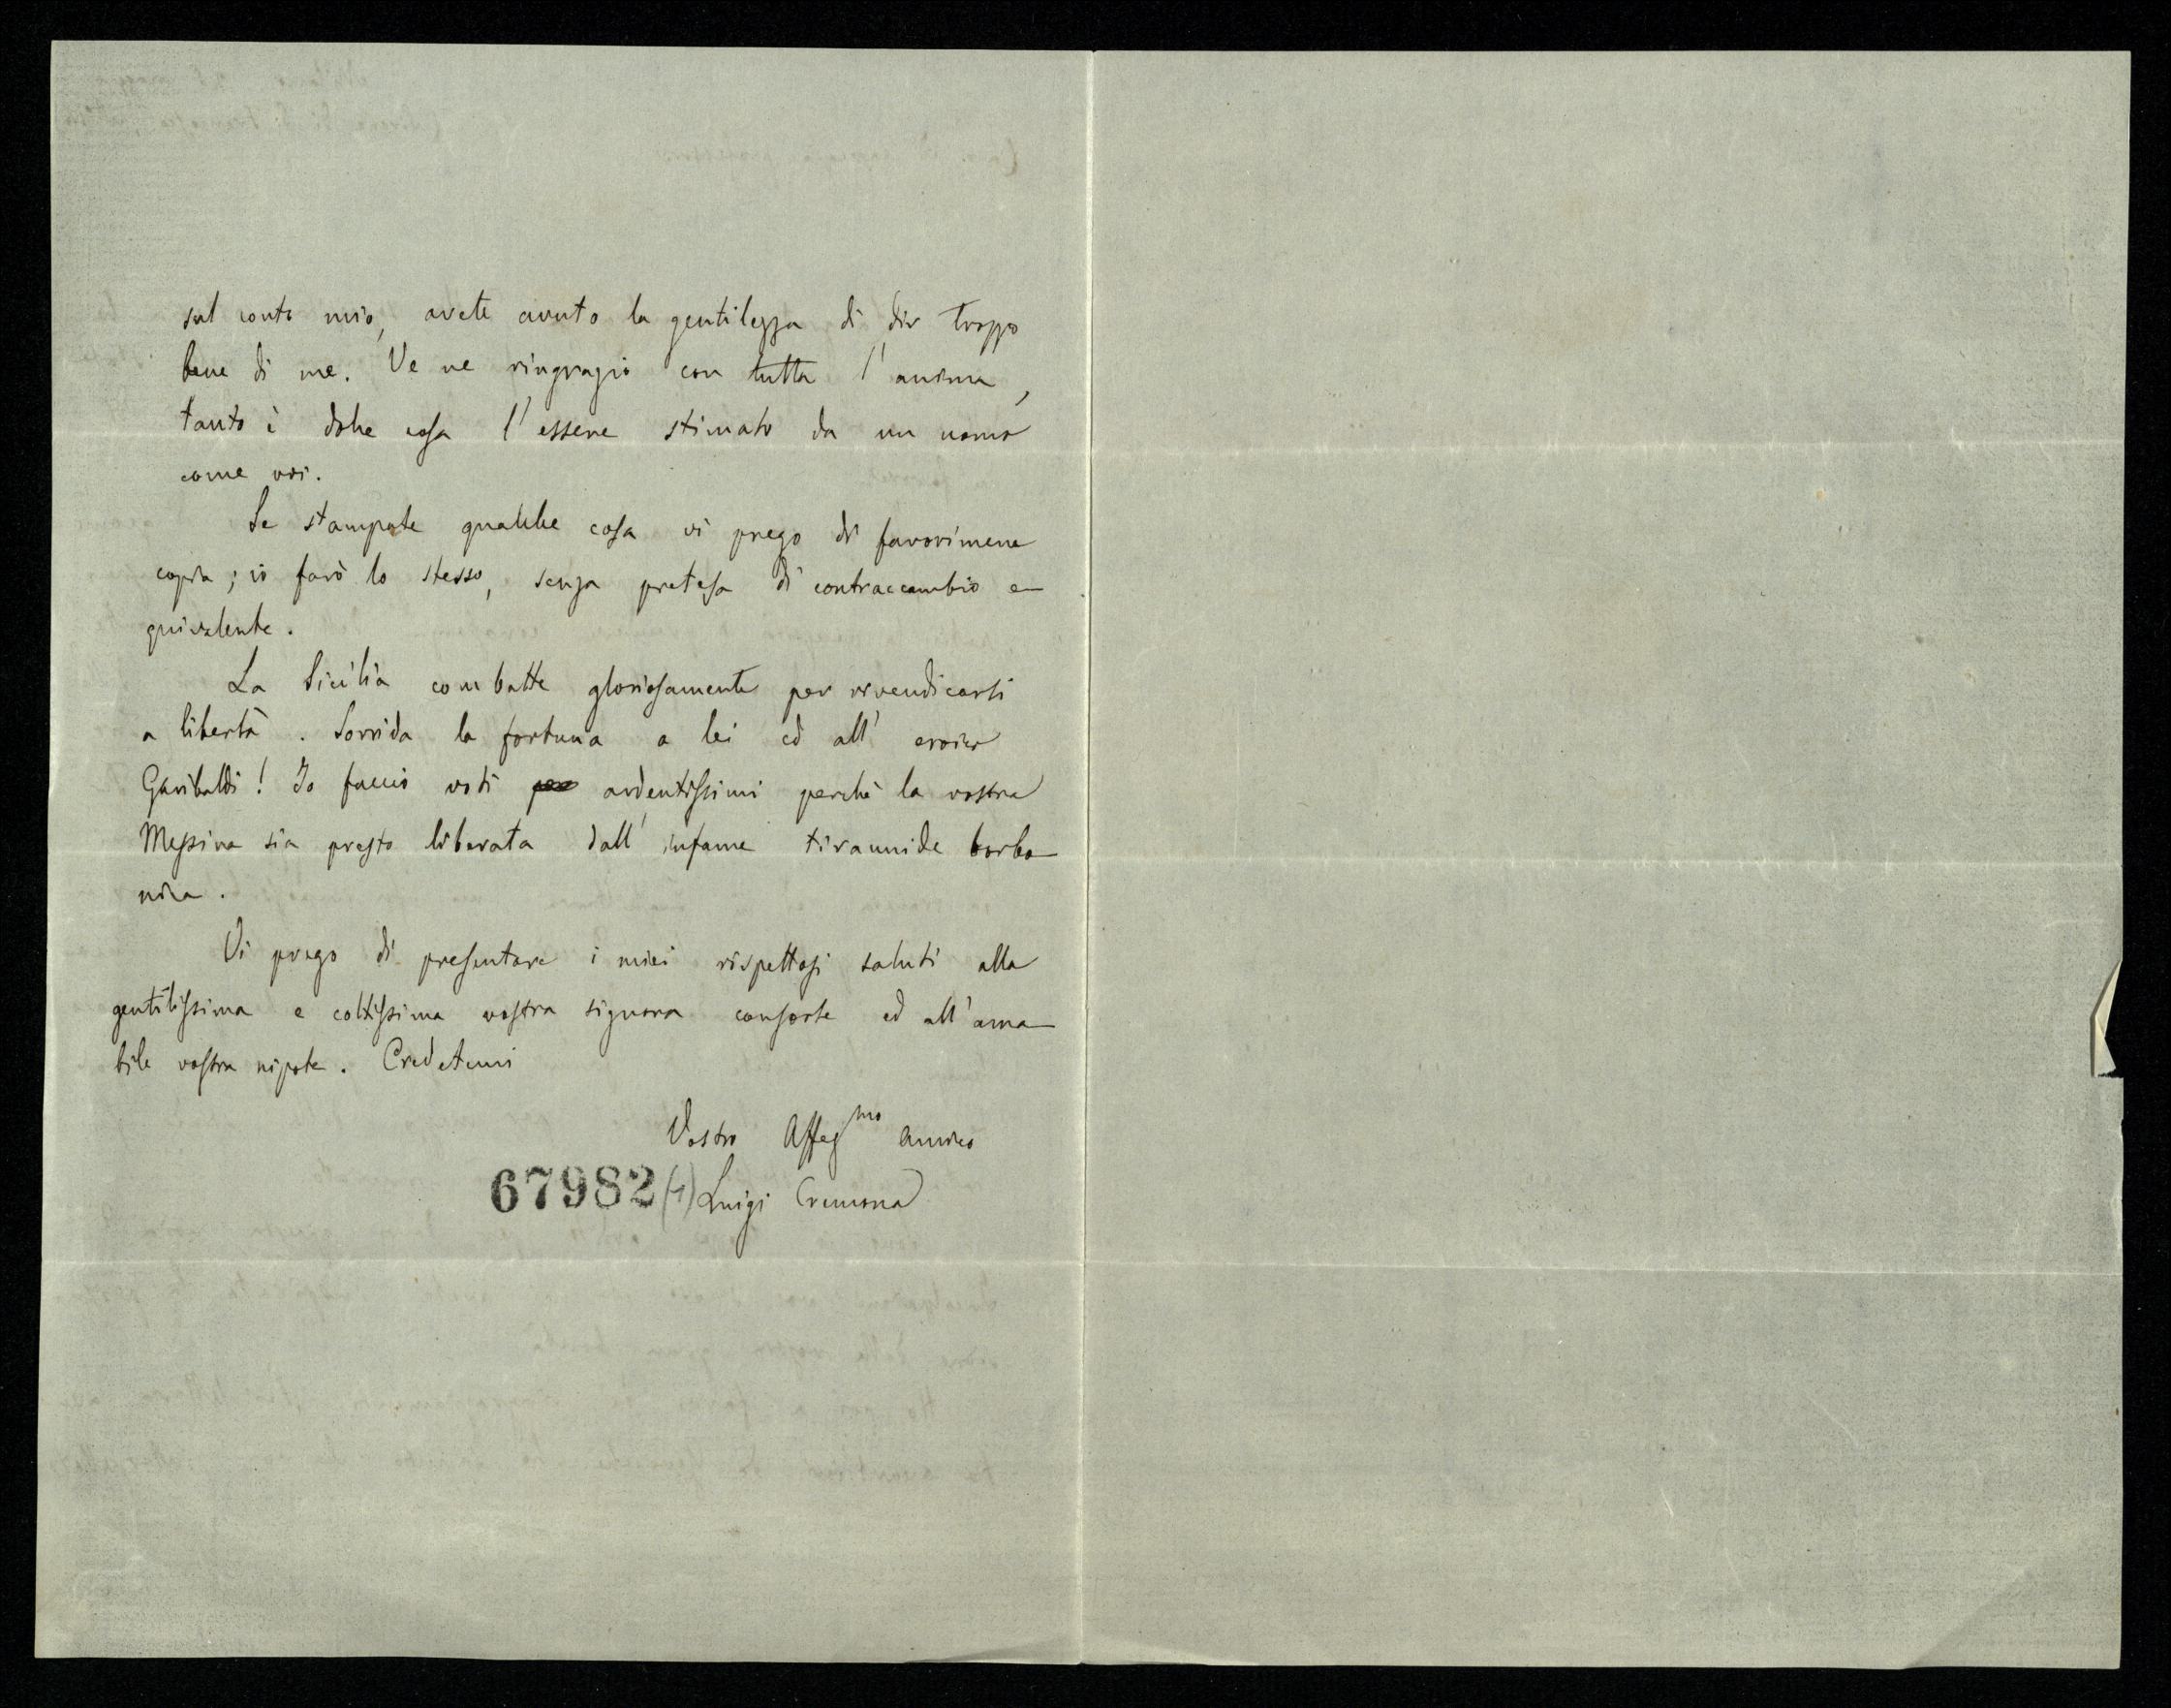 sul conto mio, avete avuto la gentilezza di dir troppo
bene di me. Ve ne ringrazio con tutta l'anima,
tanto è dolce cosa l'essere stimato da un uomo
come voi.
Se stampate qualche cosa vi prego di favorirmene
copia; io farò lo stesso, senza pretesa di contraccambio e-
quivalente.
La Sicilia combatte gloriosamente per rivendicarsi
a libertà. Sorrida la fortuna a lei ed all'eroico
Garibaldi! Io faccio voti ardentissimi perchè la vostra
Messina sia presto liberata dall'infame tirannide borbo-
nica.
Vi prego di presentare i miei rispettosi saluti alla
gentilissima e coltissima vostra signora consorte ed all'ama-
bile vostra nipote. Credetemi
Vostro Affez^mo amico
67982 (1) Luigi Cremona